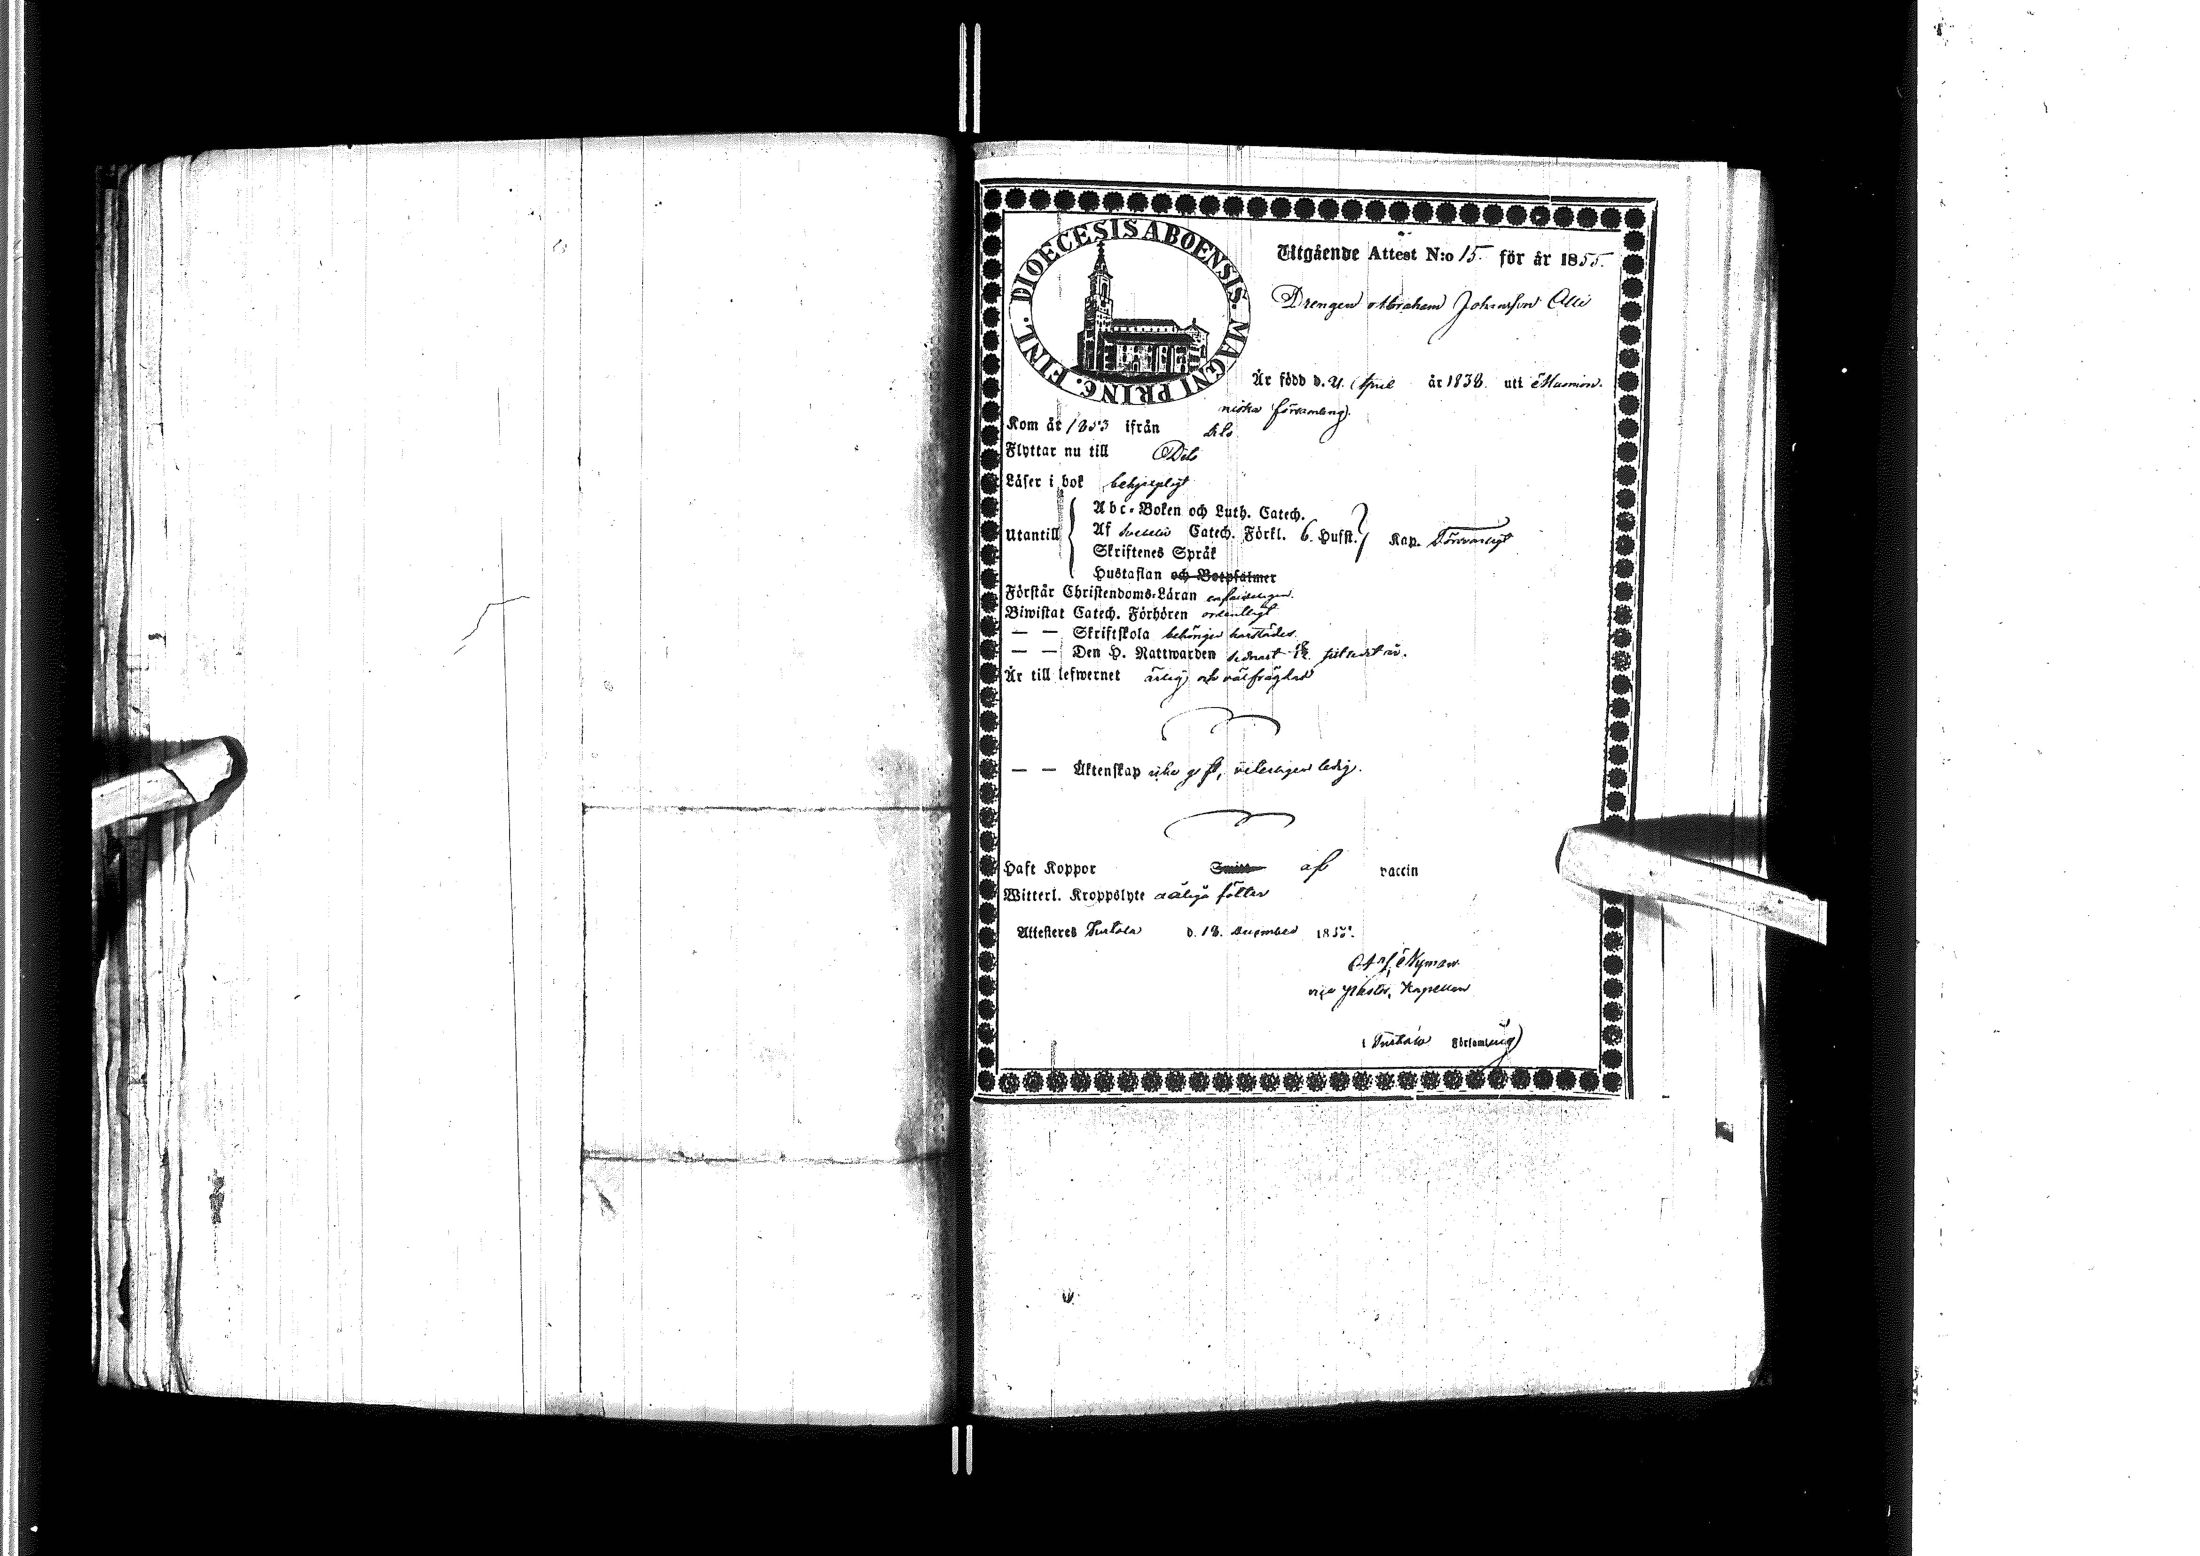 DIOECESIS ABOENSIS. MAGNI PRINC. FINL.
Utgående Attest N:o 15. för år 1855.
Drengen Abraham Johansson Olli
Är född d. 21 April år 1838. uti Muonion-
niska församling.
Kom år 1853 ifrån
Flyttar nu till Dito
Läser i bok begripligt
Abc-Boken och Luth. Catech.
Utantill Af Svebelii Catech. Förkl. 6. Hufst. Kap. Försvarligt
Skriftenes Språk
Hustaflan och Botpsalmer
Förstår Christendoms-Läran enfaldeligen.
Biwistat Catech. Förhören ordentligt
— — Skriftskola behörigen härstädes.
— — Den H. Nattwarden sednast
Är till lefwernet ärlig och välfrägdad
— — Äktenskap icke gift, ledig.
Haft Koppor Smitt- af vaccin
Witterl. Kroppslyte fötter
Attesteras Turtola d. 18. December 1855.
Nyman
vice Pastor, Kapellan
i Turtola Församling